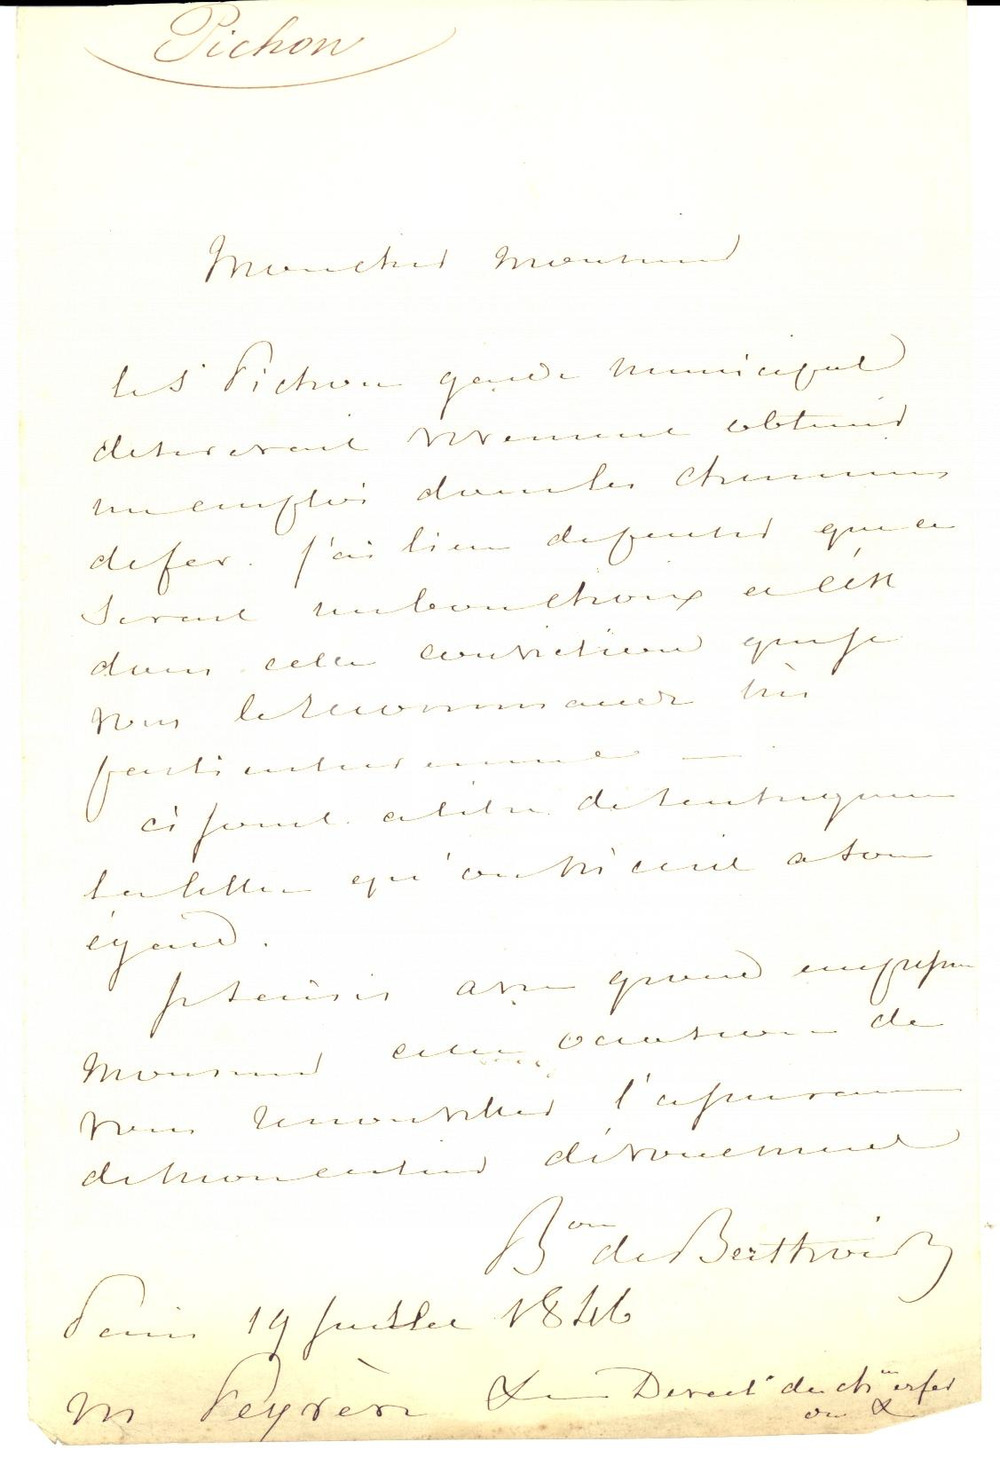 Pichon
Mon cher Monsieur
le Sr Pichon garde municipal
desirerait vivement obtenir
un emploi dans les chemins
de fer. J'ai lieu de penser que ce
serait un bon choix et c'est
dans cette conviction que je
vous le recommande très
particulierement —
ci joint à titre de renseignement
la lettre qu'on m'écrit à son
égard.
Je saisis avec grand empressement
Monsieur cette occasion de
vous renouveller l'assurance
de mon entier dévouement
Bon de Berthois
Paris 19 Juillet 1846
M Peyrère Direct des chins de fer